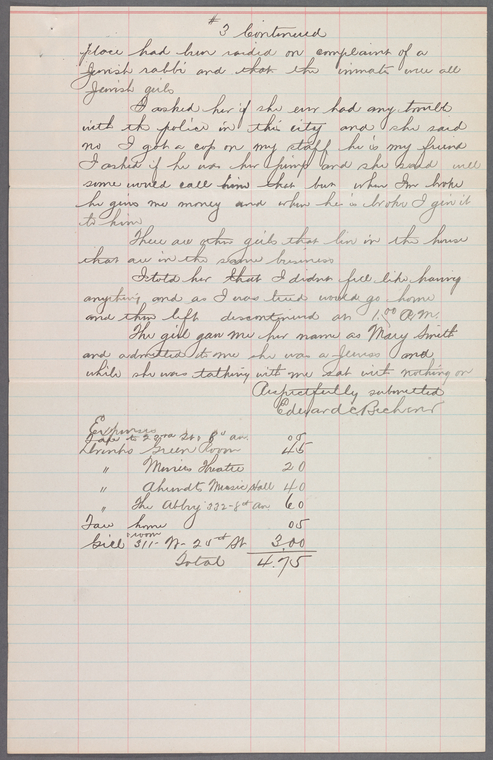 # 3 Continued
place had been raided on complaint of a
Jewish rabbi and that the inmates were all
Jewish girls
I asked her if she ever had any trouble
with the police in this city and she said
no I got a cop on my staff he is my friend
I asked if he was her pimp and she said well
some would call him that but when I'm broke
he gives me money and when he is broke I give it
to him
There are other girls that live in the house
that are in the same business
I told her that I didnt feel like having
anything and as I was tired would go home
and then left discontinued at 1.00 A.M.
The girl gave me her name as Mary Smith
and admitted to me she was a Jewess and
while she was talking with me sat with nothing on
Respectfully submitted
Edward C.
Expenses
Fare to 23rd St & 8th av. 05
Drinks Green Room 45
" Miners Theatre 20
" Music Hall 40
" The Abby 322-8th Av 60
Fare home 05
Girl & room 311- W- 20th St 3.00
Total 4.75